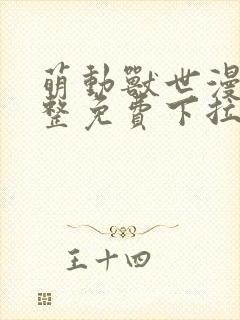 萌動獸世漫
整免費下拉
王十四